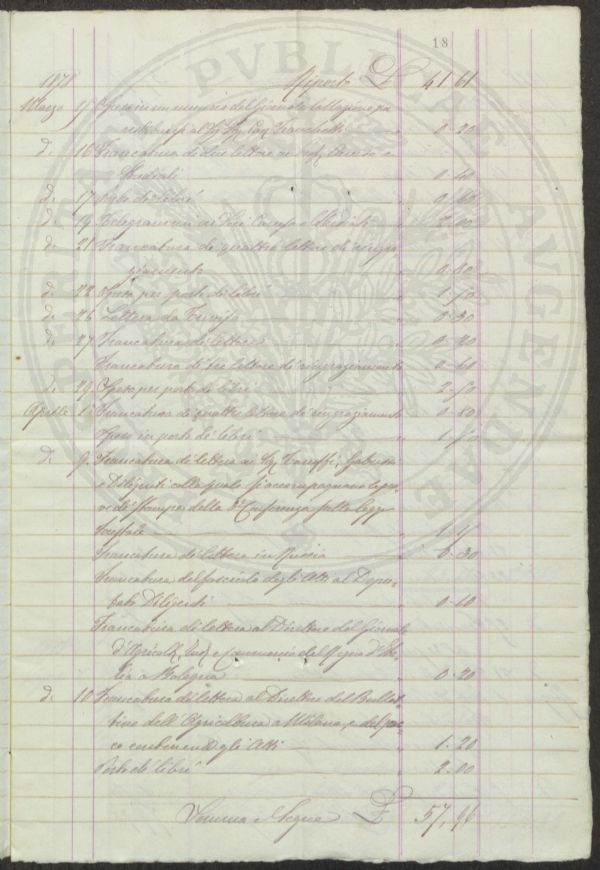 18
1878 Riporto £ 41 61
Marzo 15 Spesa in un numero del Giornale
al Sig. Franchetti " 0.20
d. 16 Francatura di due lettere ai Sig. Caruso e
Studiati " 0.40
d. 17 Porto di libri " 0.60
d. 19 Telegrammi ai Sig. Caruso e Studiati " 2.00
d. 21 Francatura di quattro lettere di ringra-
ziamento " 0.80
d. 22 Spesa per porto di libri " 1.50
d. 26 Lettera da " 0.30
d. 27 Francatura di lettere " 0.20
Francatura di tre lettere di ringraziamento " 0.60
d. 29 Spesa per porto di libri " 2.50
Aprile 1 Francatura di quattro lettere di ringraziamento " 0.80
Spesa in porto di libri " 1.50
d. 9 Francatura di lettera ai Sig. Taruffi,
e Diligenti colla quale si accompagnano le pro-
ve di stampa della Conferenza sulla legge
forestale
Francatura di lettera in Russia " 0.30
Francatura del fascicolo degli Atti al Depu-
tato Diligenti " 0.10
Francatura di lettera al Direttore del Giornale
d'Agricoltura, Ind. e Commercio del Regno d'Ita-
lia a Bologna " 0.20
d. 10 Francatura di lettera al Direttore del Bullet-
tino dell'Agricoltura a Milano, e del pac-
co contenente gli Atti " 1.20
Porto di libri " 2.00
Somma e Segue £ 57,96